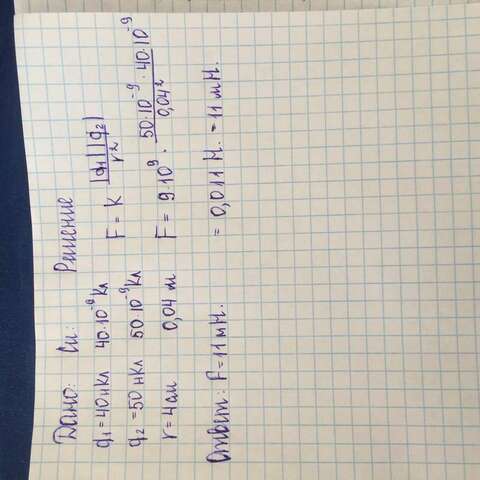 Дано: Си: Решение
q₁ = 40 нКл 40·10⁻⁹ Кл F = k |q₁||q₂| / r²
q₂ = 50 нКл 50·10⁻⁹ Кл
r = 4 см 0,04 м F = 9·10⁹ · 50·10⁻⁹ · 40·10⁻⁹ / 0,04²
= 0,011 Н. = 11 мН.
Ответ: F = 11 мН.